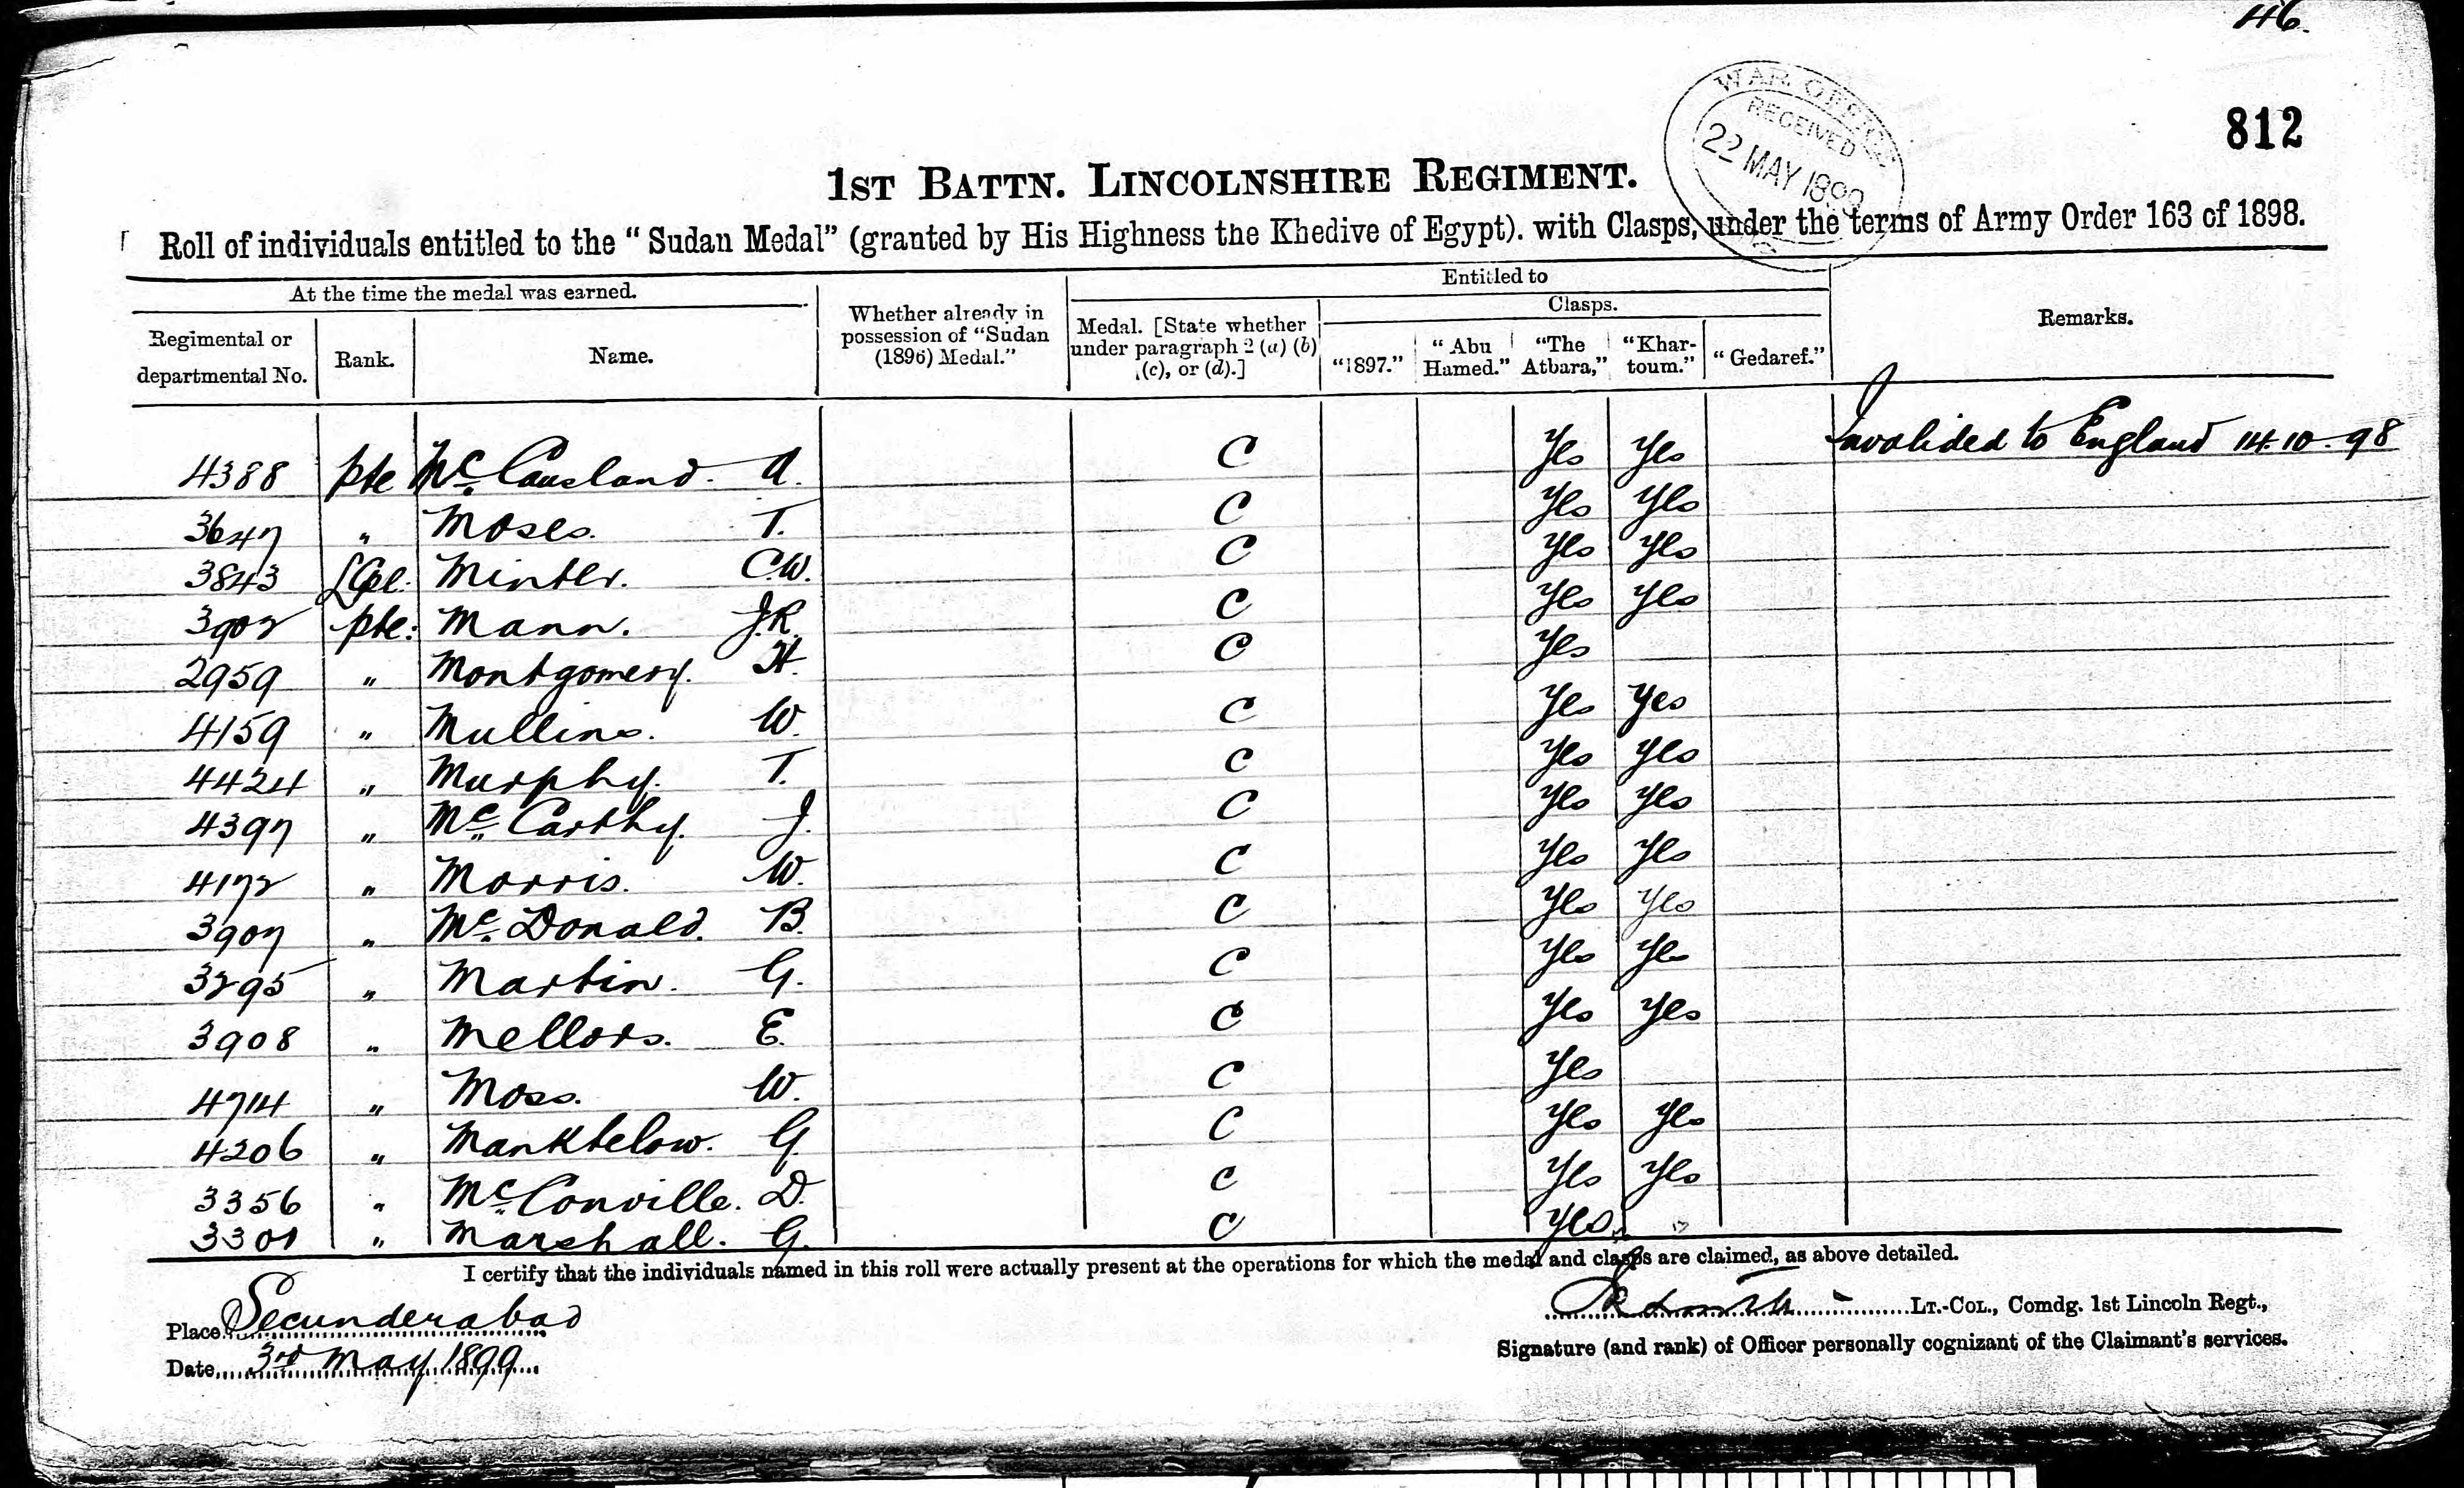 46.
812
WAR OFFICE
RECEIVED
22 MAY 1899
1ST BATTN. LINCOLNSHIRE REGIMENT.
Roll of individuals entitled to the "Sudan Medal" (granted by His Highness the Khedive of Egypt). with Clasps, under the terms of Army Order 163 of 1898.
At the time the medal was earned.
Regimental or departmental No.
Rank.
Name.
Whether already in possession of "Sudan (1896) Medal."
Entitled to
Medal. [State whether under paragraph 2 (a) (b) (c), or (d).]
Clasps.
"1897."
"Abu Hamed."
"The Atbara,"
"Khartoum."
"Gedaref."
Remarks.
4388 Pte Mc. Causland. A. C Yes Yes Invalided to England 14.10.98
3647 " Moses. T. C Yes Yes
3843 LCpl. Minter. C.W. C Yes Yes
3902 Pte: Mann. J.R. C Yes Yes
2959 " Montgomery. H. C Yes
4159 " Mullins. W. C Yes Yes
4424 " Murphy. T. C Yes Yes
4397 " Mc. Carthy. J. C Yes Yes
4172 " Morris. W. C Yes Yes
3907 " Mc. Donald. B. C Yes Yes
3295 " Martin. G. C Yes Yes
3908 " Mellors. E. C Yes Yes
4714 " Moss. W. C Yes
4206 " Manktelow. G. C Yes Yes
3356 " Mc. Conville. D. C Yes Yes
3301 " Marshall. G. C Yes.
I certify that the individuals named in this roll were actually present at the operations for which the medal and clasps are claimed, as above detailed.
Place Secunderabad
Date 3rd May 1899
LT.-COL., Comdg. 1st Lincoln Regt.,
Signature (and rank) of Officer personally cognizant of the Claimant's services.